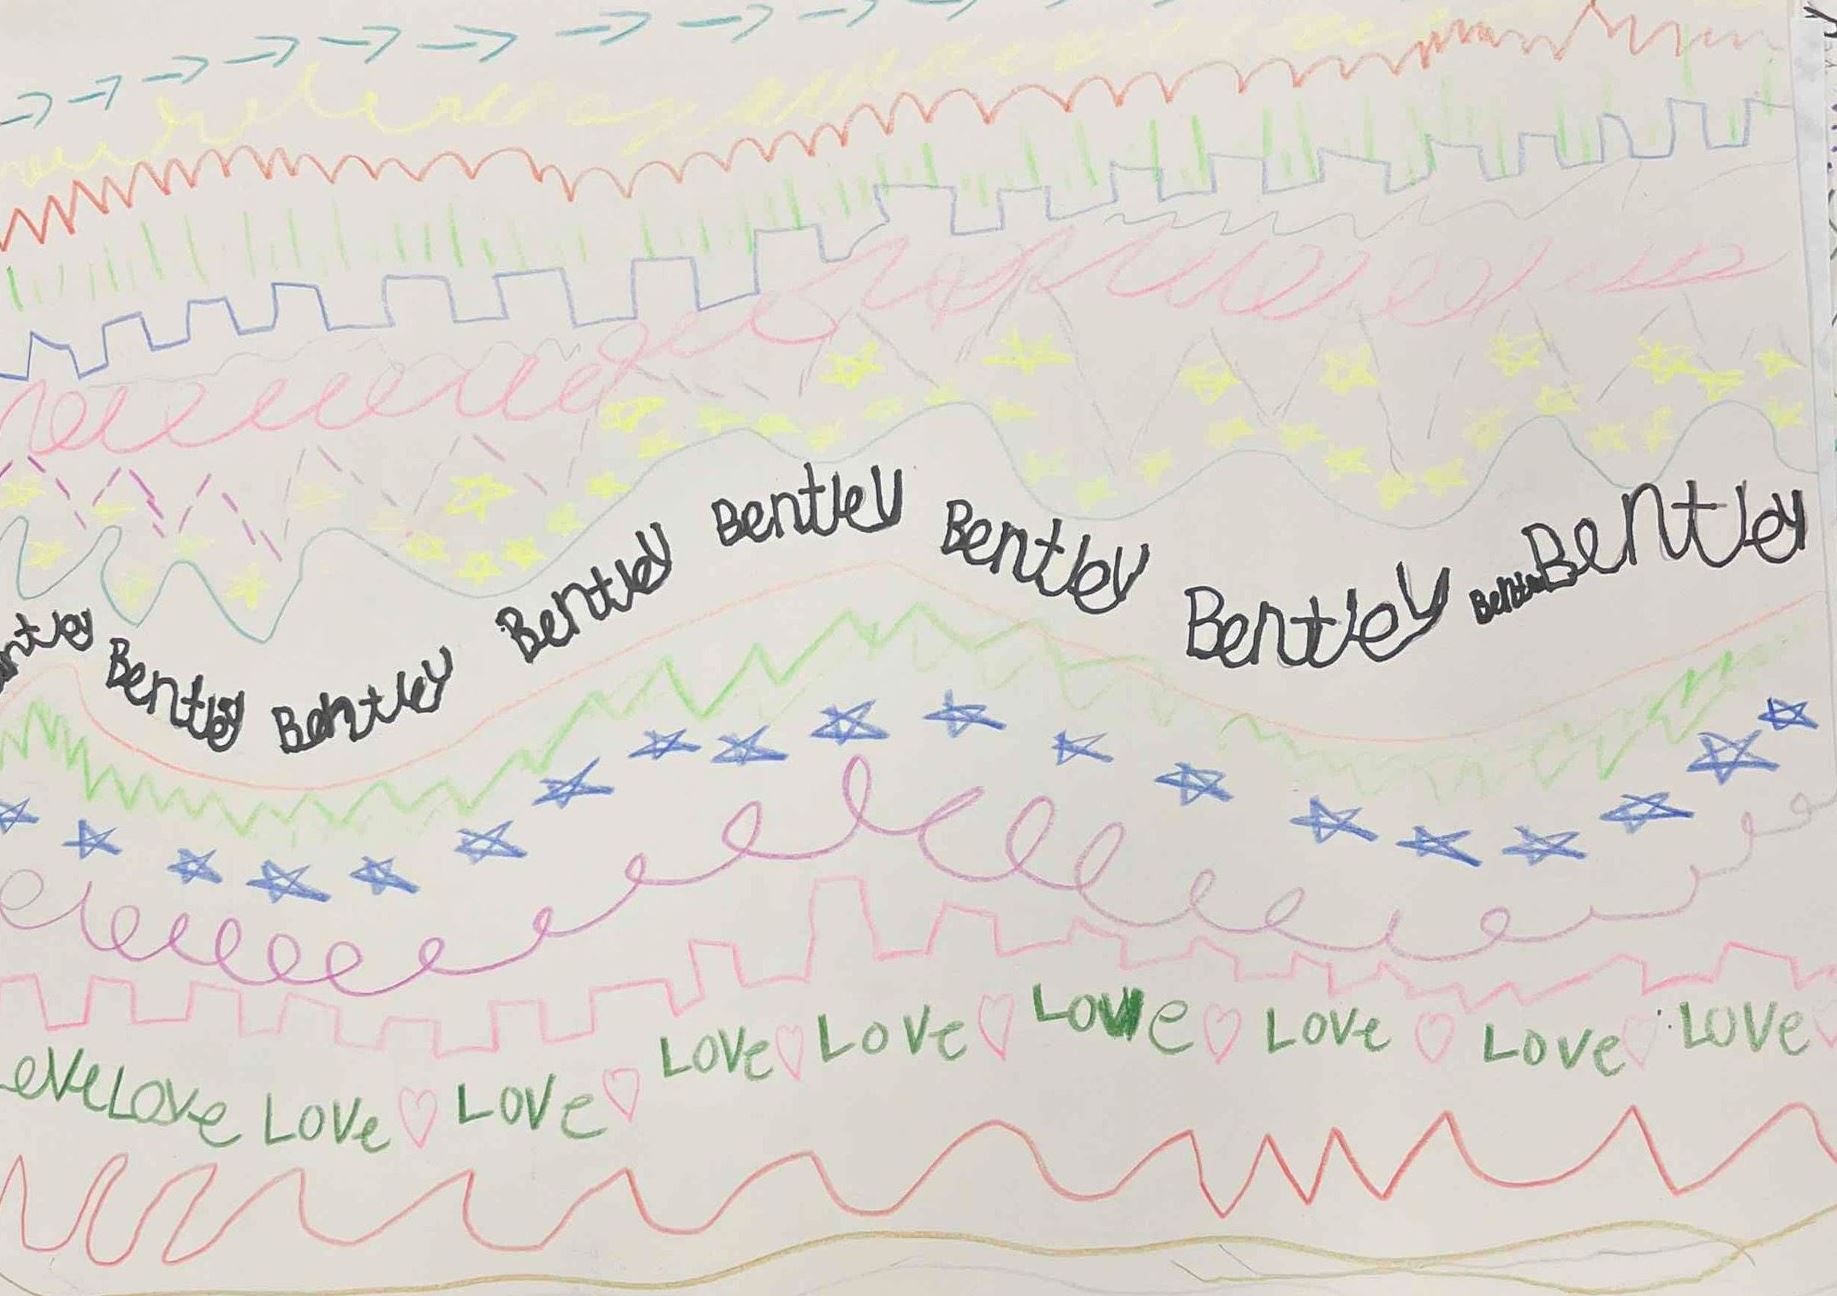 Bentley Bentley Bentley Bentley Bentley Bentley Bentley
Love Love Love Love Love Love Love Love Love